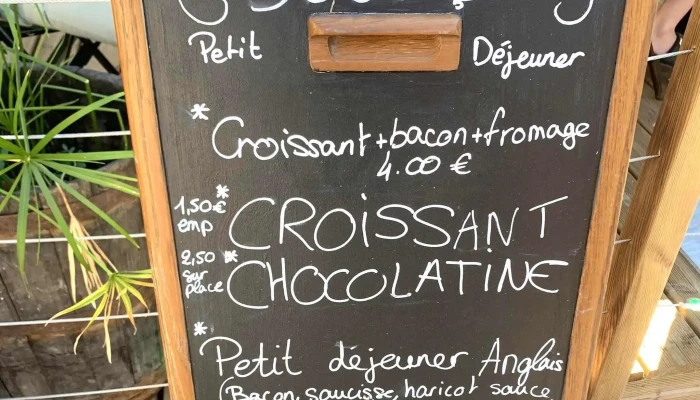 Petit Déjeuner
* Croissant+bacon+fromage
4.00 €
1,50€ * CROISSANT
emp
2,50 * CHOCOLATINE
sur
place
* Petit déjeuner Anglais
(Bacon, saucisse, haricot sauce